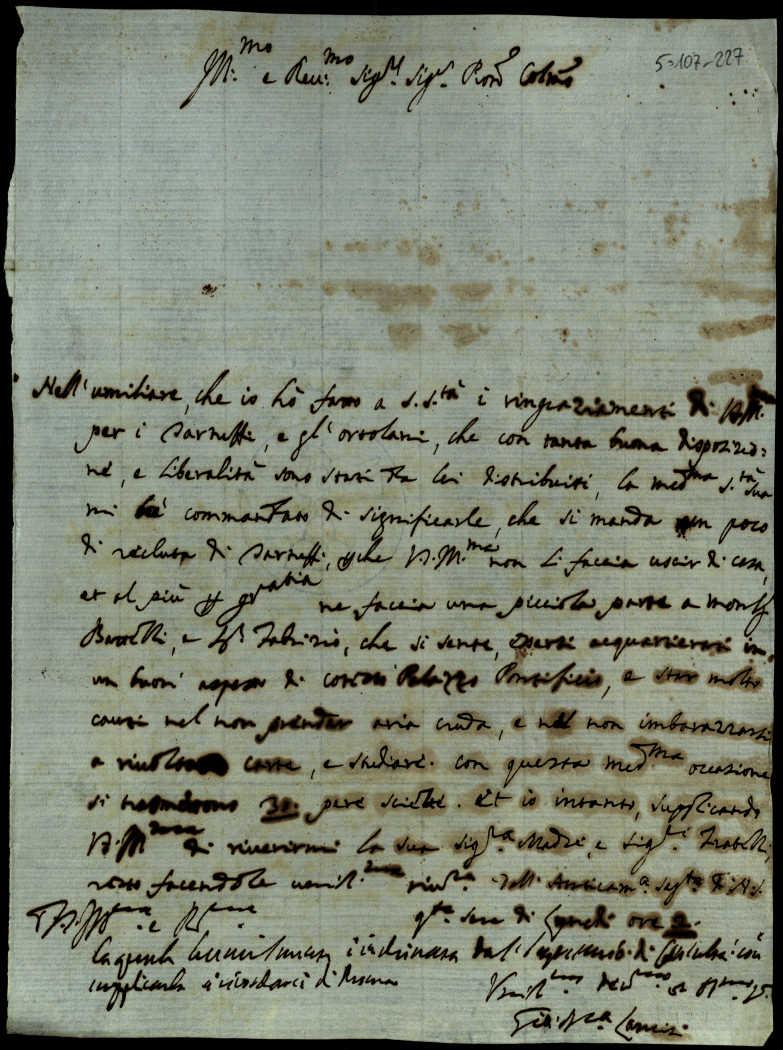 5-107-227
Ill.mo e Rev.mo Sig.r Sig.r Pron Colmo
Nell'umiliare, che io hò fatto a S. S.tà i ringraziamenti di V.S. Ill.ma
per i Tartuffi, e gl'ortolani, che con tanta buona disposizio=
ne, e liberalità sono stati da lei distribuiti, la med.ma S.tà Sua
mi hà commandato di significarle, che si manda un poco
di recluta di Tartuffi, che V.S. Ill.ma non li faccia uscir di casa,
et al più per gratia ne faccia una picciola parte a Mons.r
e Sr. Fabrizio, che si sente, acquartierati in
un buon di cotesto Palazzo Pontificio, e star molto
cauti nel non prender aria cruda, e nel non imbarazzarsi
a carte, e studiare. Con questa med.ma occasione
si trasmettono 30. pere scielte. Et io intanto, supplicando
V.S. Ill.ma di riverirmi la sua Sig.ra Madre, e Sig.ri Fratelli,
resto facendole umil.ma riv.za Dall' Anticam.a Seg.ta di N.S.
q.ta sera di Lunedì ore 2.
D. V.S. Ill.ma e R.ma
la quale
supplicarla a ricordarsi di
Umil.mo Dev.mo et Obl.mo S.
Gio: M.a Lancisi